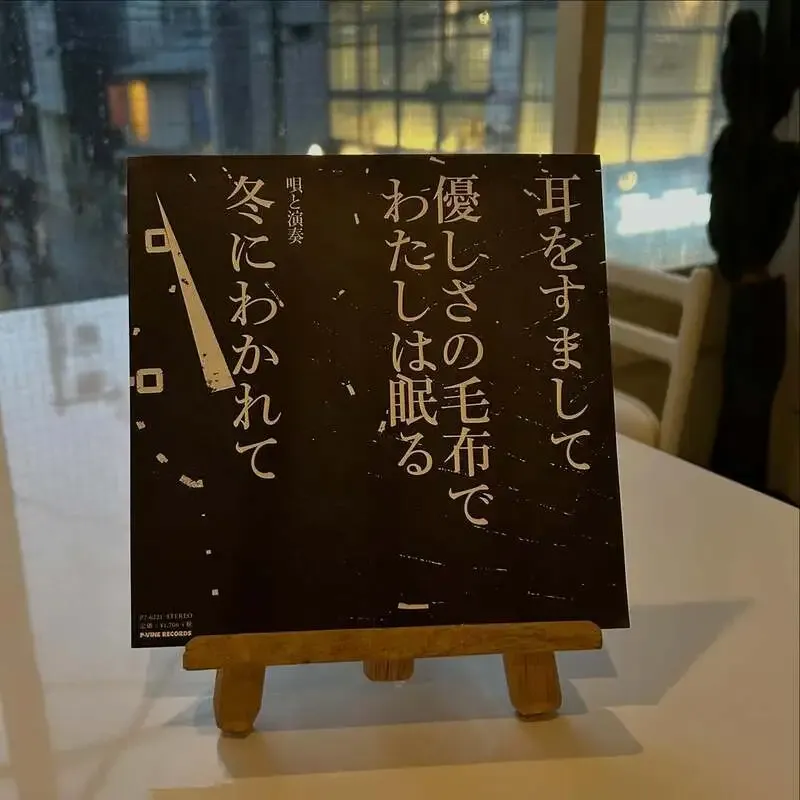 耳をすまして
優しさの毛布で
わたしは眠る
唄と演奏
冬にわかれて
P7-6221 STEREO
定価:¥1,700+税
P-VINE RECORDS